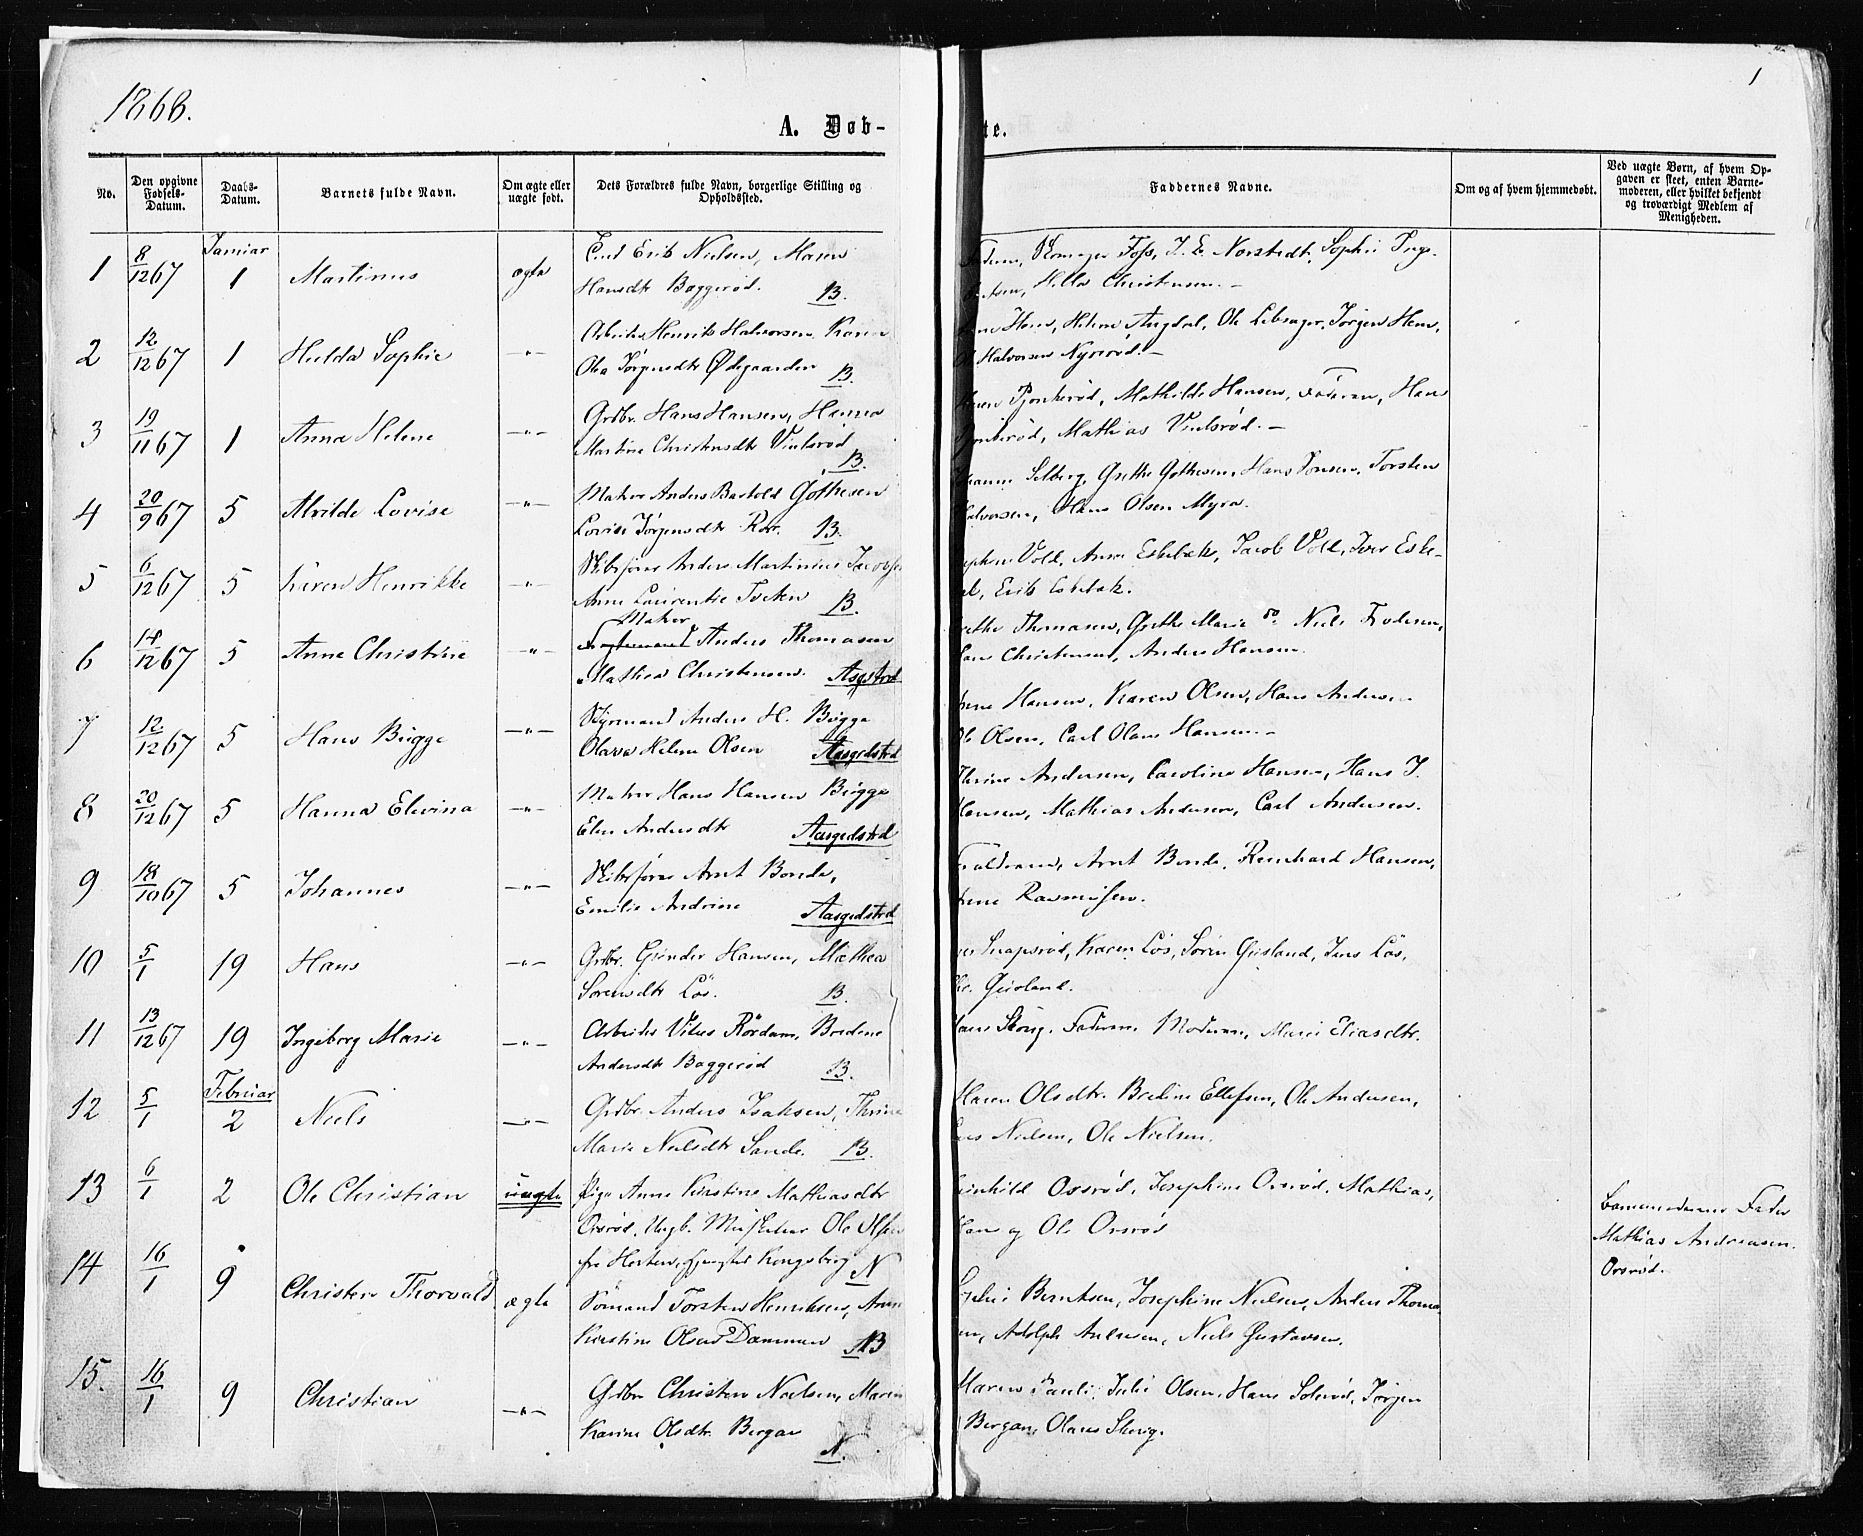 1868.
1
A. Døb-
te.
No.
Den opgivne Fødsels-Datum.
Daabs-Datum.
Barnets fulde Navn.
Om ægte eller uægte født.
Dets Forældres fulde Navn, borgerlige Stilling og Opholdssted.
Faddernes Navne.
Om og af hvem hjemmedøbt.
Ved uægte Børn, af hvem Opgaven er skeet, enten Barnemoderen, eller hvilket bekjendt og troværdigt Medlem af Menigheden.
1 8/12 67 Januar 1 Martinus ægte Erik Nielsen, Maren
Hansdtr Baggerød. B.
Foss, J. E. Norstedt, Sophie
Christensen.-
2 12/12 67 1 Hulda Sophie -"- Henrik Halvorsen, Karen
Olea Jørgensdtr Ødegaarden B.
Helene Angdal, Ole Jørgen Hem,
Halvorsen Nyrerød.-
3 19/11 67 1 Anna Helene -"- Grdbr. Hans Hansen, Hanna
Martine Christensdtr Vintsrød B.
Mathilde Hansen, Faderen, Hans
Mathias Vintsrød.-
4 20/9 67 5 Alvilde Lovise -"- Matros Anders Bartold Gothesen
Lovise Jørgensdtr Rør. B.
Solberg, Grethe Gothesen, Hans Jonsen, Torsten
Halvorsen, Hans Olsen Myra.
5 6/12 67 5 Karen Henrikke -"- Skibsfører Anders Martinius
Anne Laurentie Tveten B.
Vold, Anne Eskebæk, Jacob Vold, Iver Eske-
Erik Eskebæk.
6 14/12 67 5 Anne Christine -"- Matros
Anders Thomasen
Mathea Christensen. Aasgstrd
Thomasen, Grethe Marie do. Niels
Hans Christensen, Anders Hansen.
7 12/12 67 5 Hans Bugge -"- Styrmand Anders H. Bugge
Olava Helene Olsen Aasgrdstrd
Hansen, Karen Olsen, Hans Anders.-
Ole Olsen, Carl Olaus Hansen.-
8 20/12 67 5 Hanna Elevina -"- Matros Hans Hansen Bugge
Elen Andersdtr Aasgrdstrd
Thrine Andersen, Caroline Hansen, Hans J.
Hansen, Mathias Andersen, Carl Andersen.
9 18/10 67 5 Johannes -"- Skibsfører Arnt Bonde,
Emilie Andrine Aasgrdstrd
Arnt Bonde, Reinhard Hansen,
Rasmussen.
10 5/1 19 Hans -"- Grdbr. Gunder Hansen, Mathea
Sørensdtr Løs. B.
Karen Løs, Søren Gusland, Jens Løs,
Gusland.
11 13/12 67 19 Ingeborg Marie -"- Arbeider Vilus Rørdam, Bredine
Andersdtr Baggerød B.
Skaug. Faderen Moderen, Marie Eliasdtr.
12 5/1 Februar 2 Niels -"- Grdbr. Anders Isaksen, Thrine
Marie Nielsdtr Sande. B.
Maren Olsdtr. Bredine Ellefsen, Ole Andersen,
Nielsen, Ole Nielsen.
13 6/1 2 Ole Christian uægte Pige Anne Kirstine Mathiasdtr
Orsrød, Ungk. Musketeer Ole Olsen
fra Horten, Kongsberg N
Orsrød, Josephine Orsrød, Mathias,
og Ole Orsrød
Barnemoderens Fader
Mathias Andreasen
Orsrød.
14 16/1 9 Christen Thorvald ægte Sømand Torsten Henriksen, Anne
Kirstine Olsen Dammen B
Berntsen, Josephine Nielsen, Anders Thoma
Adolph Andersen, Niels Gustavsen.
15. 16/1 9 Christian -"- Grdbr Christen Nielsen, Maren
Karine Olsdtr. Bergan N.
Maren Pauli, Julie Olsen, Hans Solerød, Jørgen
Bergan, Olaus Skaug.